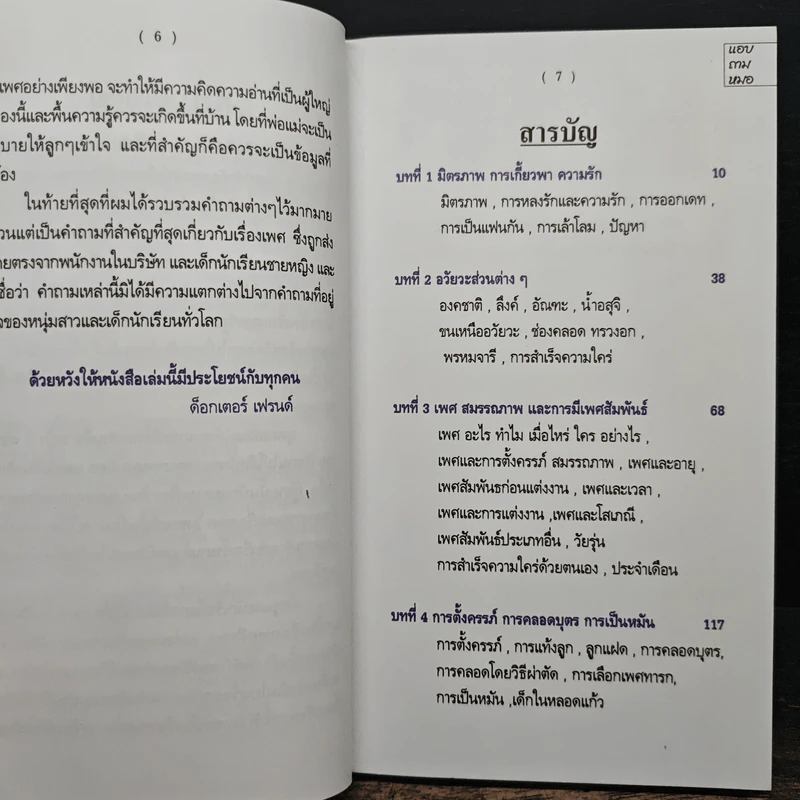 ( 6 )
เพศอย่างเพียงพอ จะทำให้มีความคิดความอ่านที่เป็นผู้ใหญ่
องนี้และพื้นความรู้ควรจะเกิดขึ้นที่บ้าน โดยที่พ่อแม่จะเป็น
บายให้ลูกๆเข้าใจ และที่สำคัญก็คือควรจะเป็นข้อมูลที่
ในท้ายที่สุดที่ผมได้รวบรวมคำถามต่างๆไว้มากมาย
วนแต่เป็นคำถามที่สำคัญที่สุดเกี่ยวกับเรื่องเพศ ซึ่งถูกส่ง
ยตรงจากพนักงานในบริษัท และเด็กนักเรียนชายหญิง และ
ชื่อว่า คำถามเหล่านี้มิได้มีความแตกต่างไปจากคำถามที่อยู่
ของหนุ่มสาวและเด็กนักเรียนทั่วโลก
ด้วยหวังให้หนังสือเล่มนี้มีประโยชน์กับทุกคน
ด็อกเตอร์ เฟรนด์
แอบ
ถาม
หมอ
( 7 )
สารบัญ
บทที่ 1 มิตรภาพ การเกี้ยวพา ความรัก 10
มิตรภาพ , การหลงรักและความรัก , การออกเดท ,
การเป็นแฟนกัน , การเล้าโลม , ปัญหา
บทที่ 2 อวัยวะส่วนต่าง ๆ 38
องคชาติ , ลึงค์ , อัณฑะ , น้ำอสุจิ ,
ขนเหนืออวัยวะ , ช่องคลอด ทรวงอก ,
พรหมจารี , การสำเร็จความใคร่
บทที่ 3 เพศ สมรรถภาพ และการมีเพศสัมพันธ์ 68
เพศ อะไร ทำไม เมื่อไหร่ ใคร อย่างไร ,
เพศและการตั้งครรภ์ สมรรถภาพ , เพศและอายุ ,
เพศสัมพันธก่อนแต่งงาน , เพศและเวลา ,
เพศและการแต่งงาน ,เพศและโสเภณี ,
เพศสัมพันธ์ประเภทอื่น , วัยรุ่น
การสำเร็จความใคร่ด้วยตนเอง , ประจำเดือน
บทที่ 4 การตั้งครรภ์ การคลอดบุตร การเป็นหมัน 117
การตั้งครรภ์ , การแท้งลูก , ลูกแฝด , การคลอดบุตร,
การคลอดโดยวิธีผ่าตัด , การเลือกเพศทารก,
การเป็นหมัน ,เด็กในหลอดแก้ว